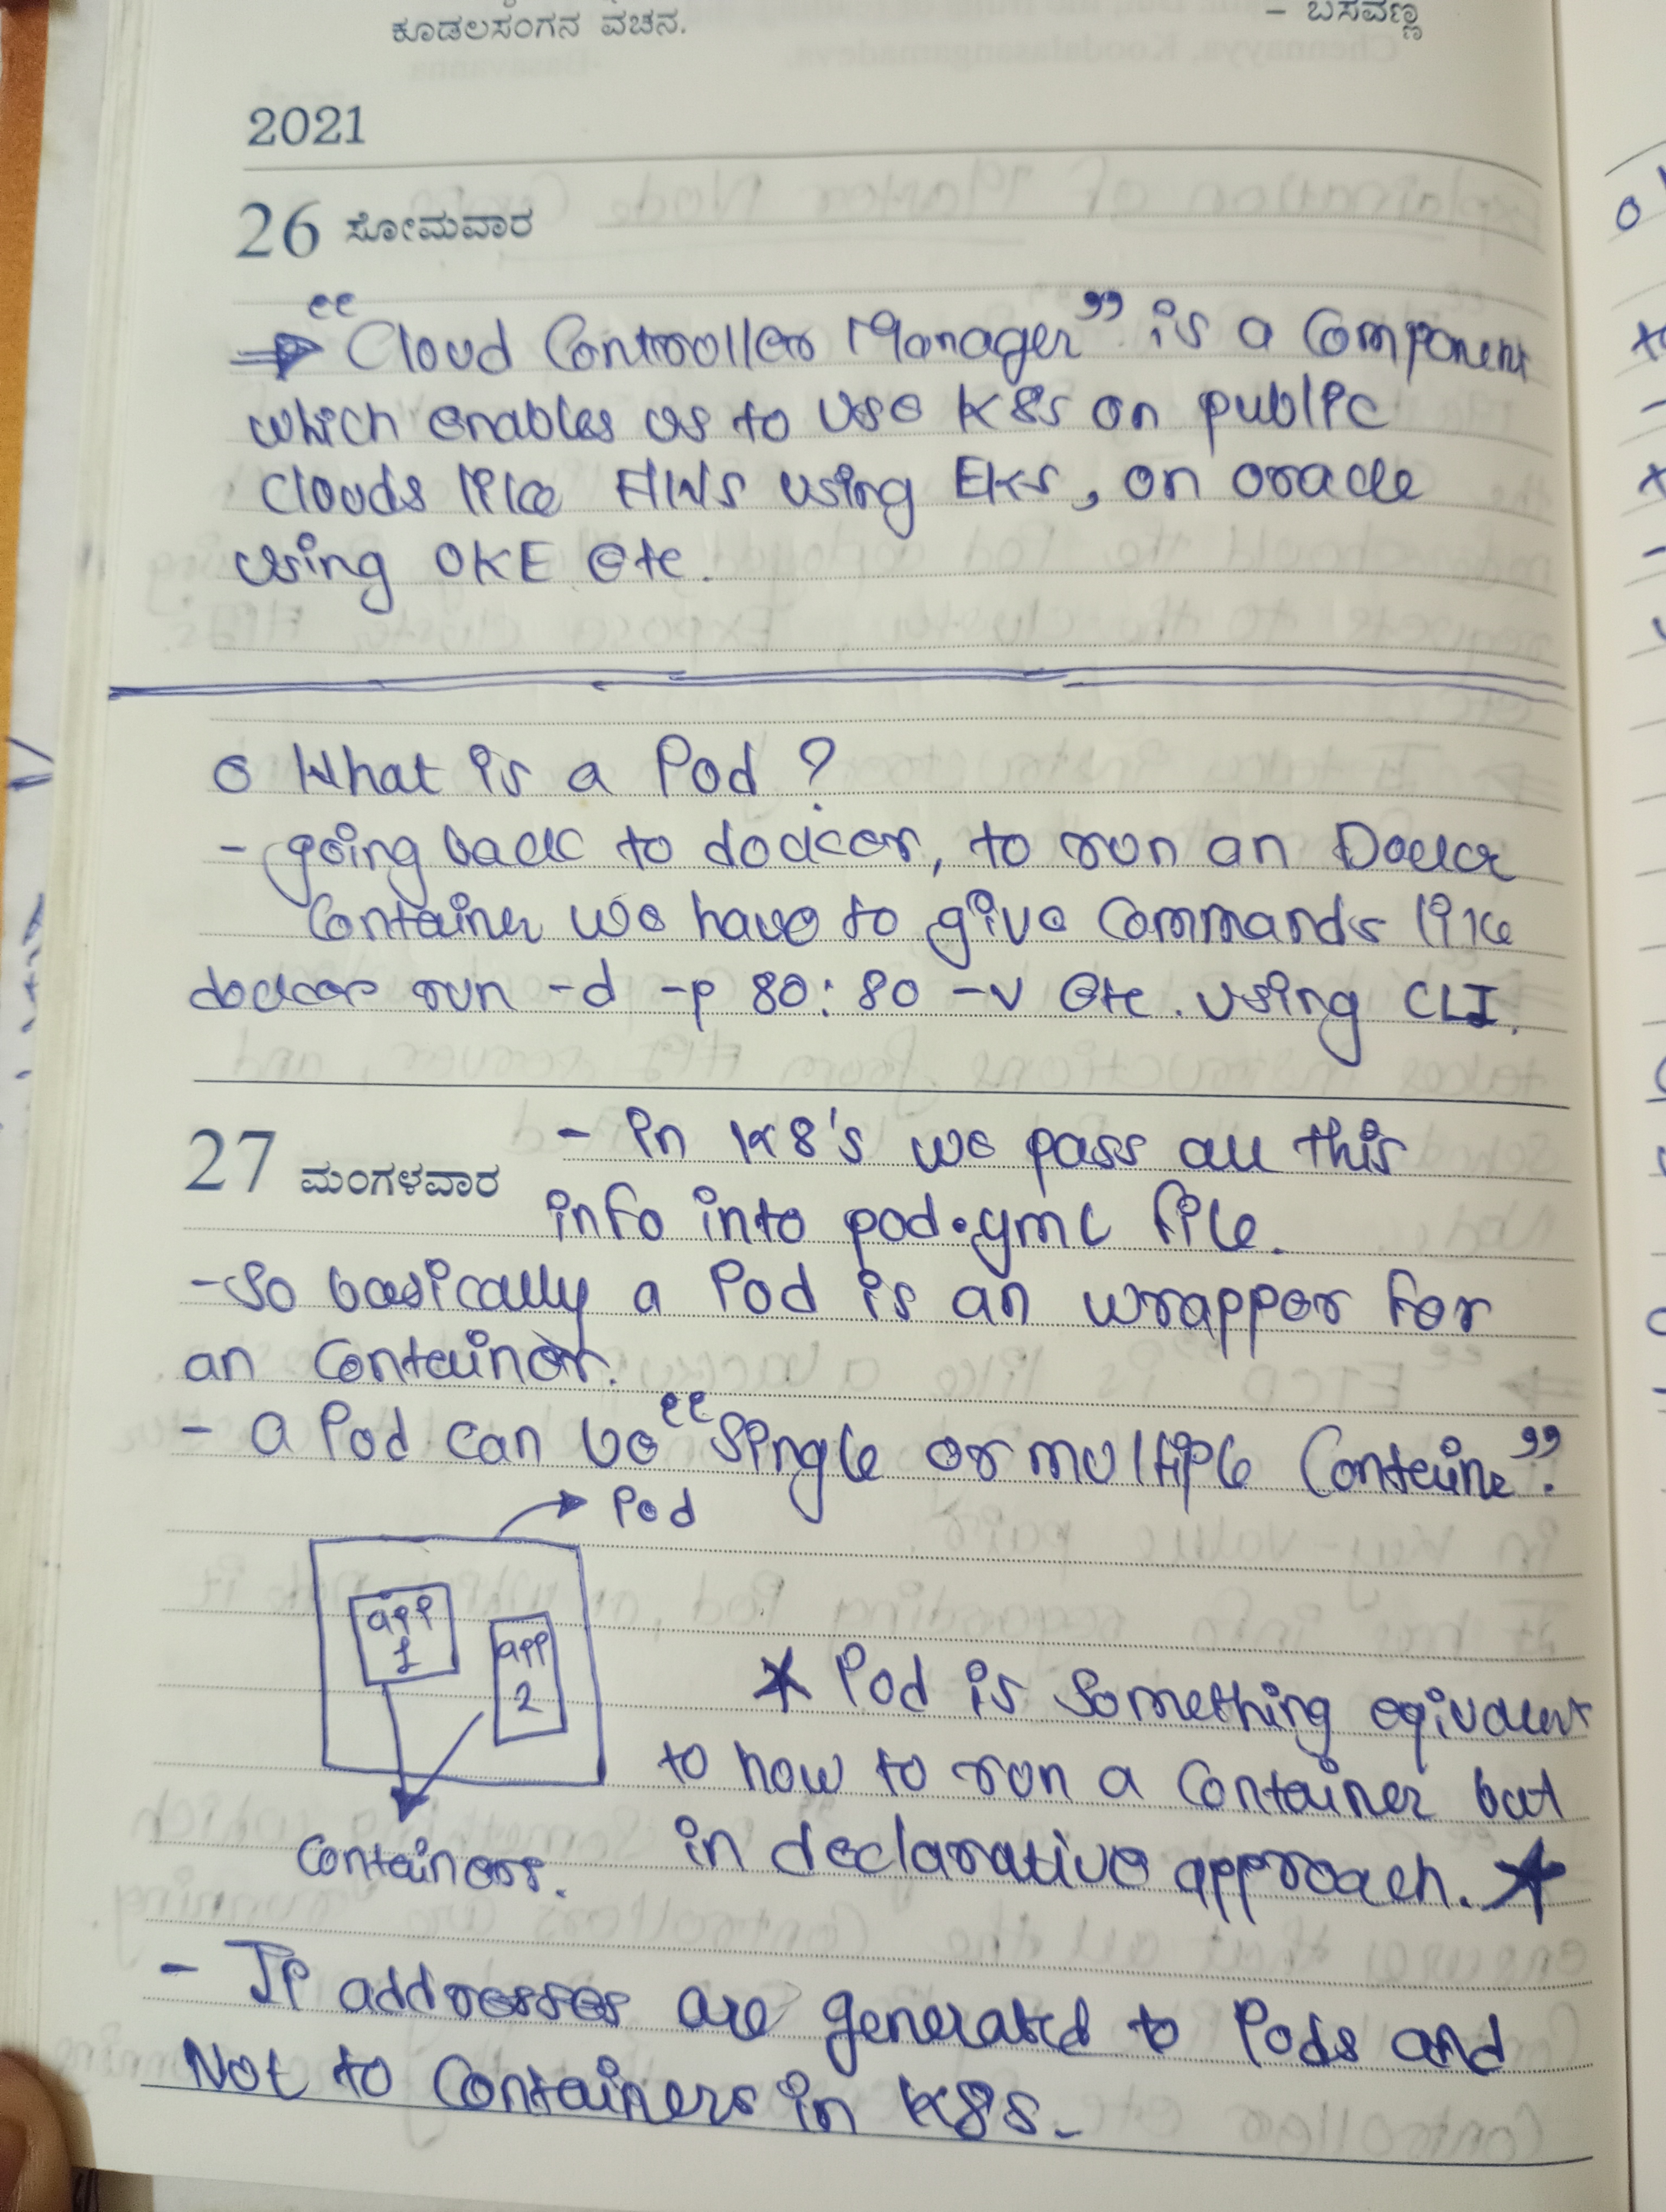 ಕೂಡಲಸಂಗನ ವಚನ.
– ಬಸವಣ್ಣ
2021
26 ಸೋಮವಾರ
⇒ “Cloud Controller Manager” is a Component
which enables us to use K8s on public
Clouds like AWS using EKS, on oracle
using OKE etc.
o What is a Pod ?
- going back to docker, to run an Docker
Container we have to give Commands like
docker run -d -p 80:80 -v etc. using CLI.
27 ಮಂಗಳವಾರ
- in K8's we pass all this
info into pod.yml file.
- So basically a Pod is an wrapper for
an Container.
- a Pod can be “Single or multiple Container”.
Pod
app
1
app
2
Containers.
* Pod is Something eqivalent
to how to run a Container but
in declarative approach. *
- IP addresses are generated to Pods and
Not to Containers in K8s.